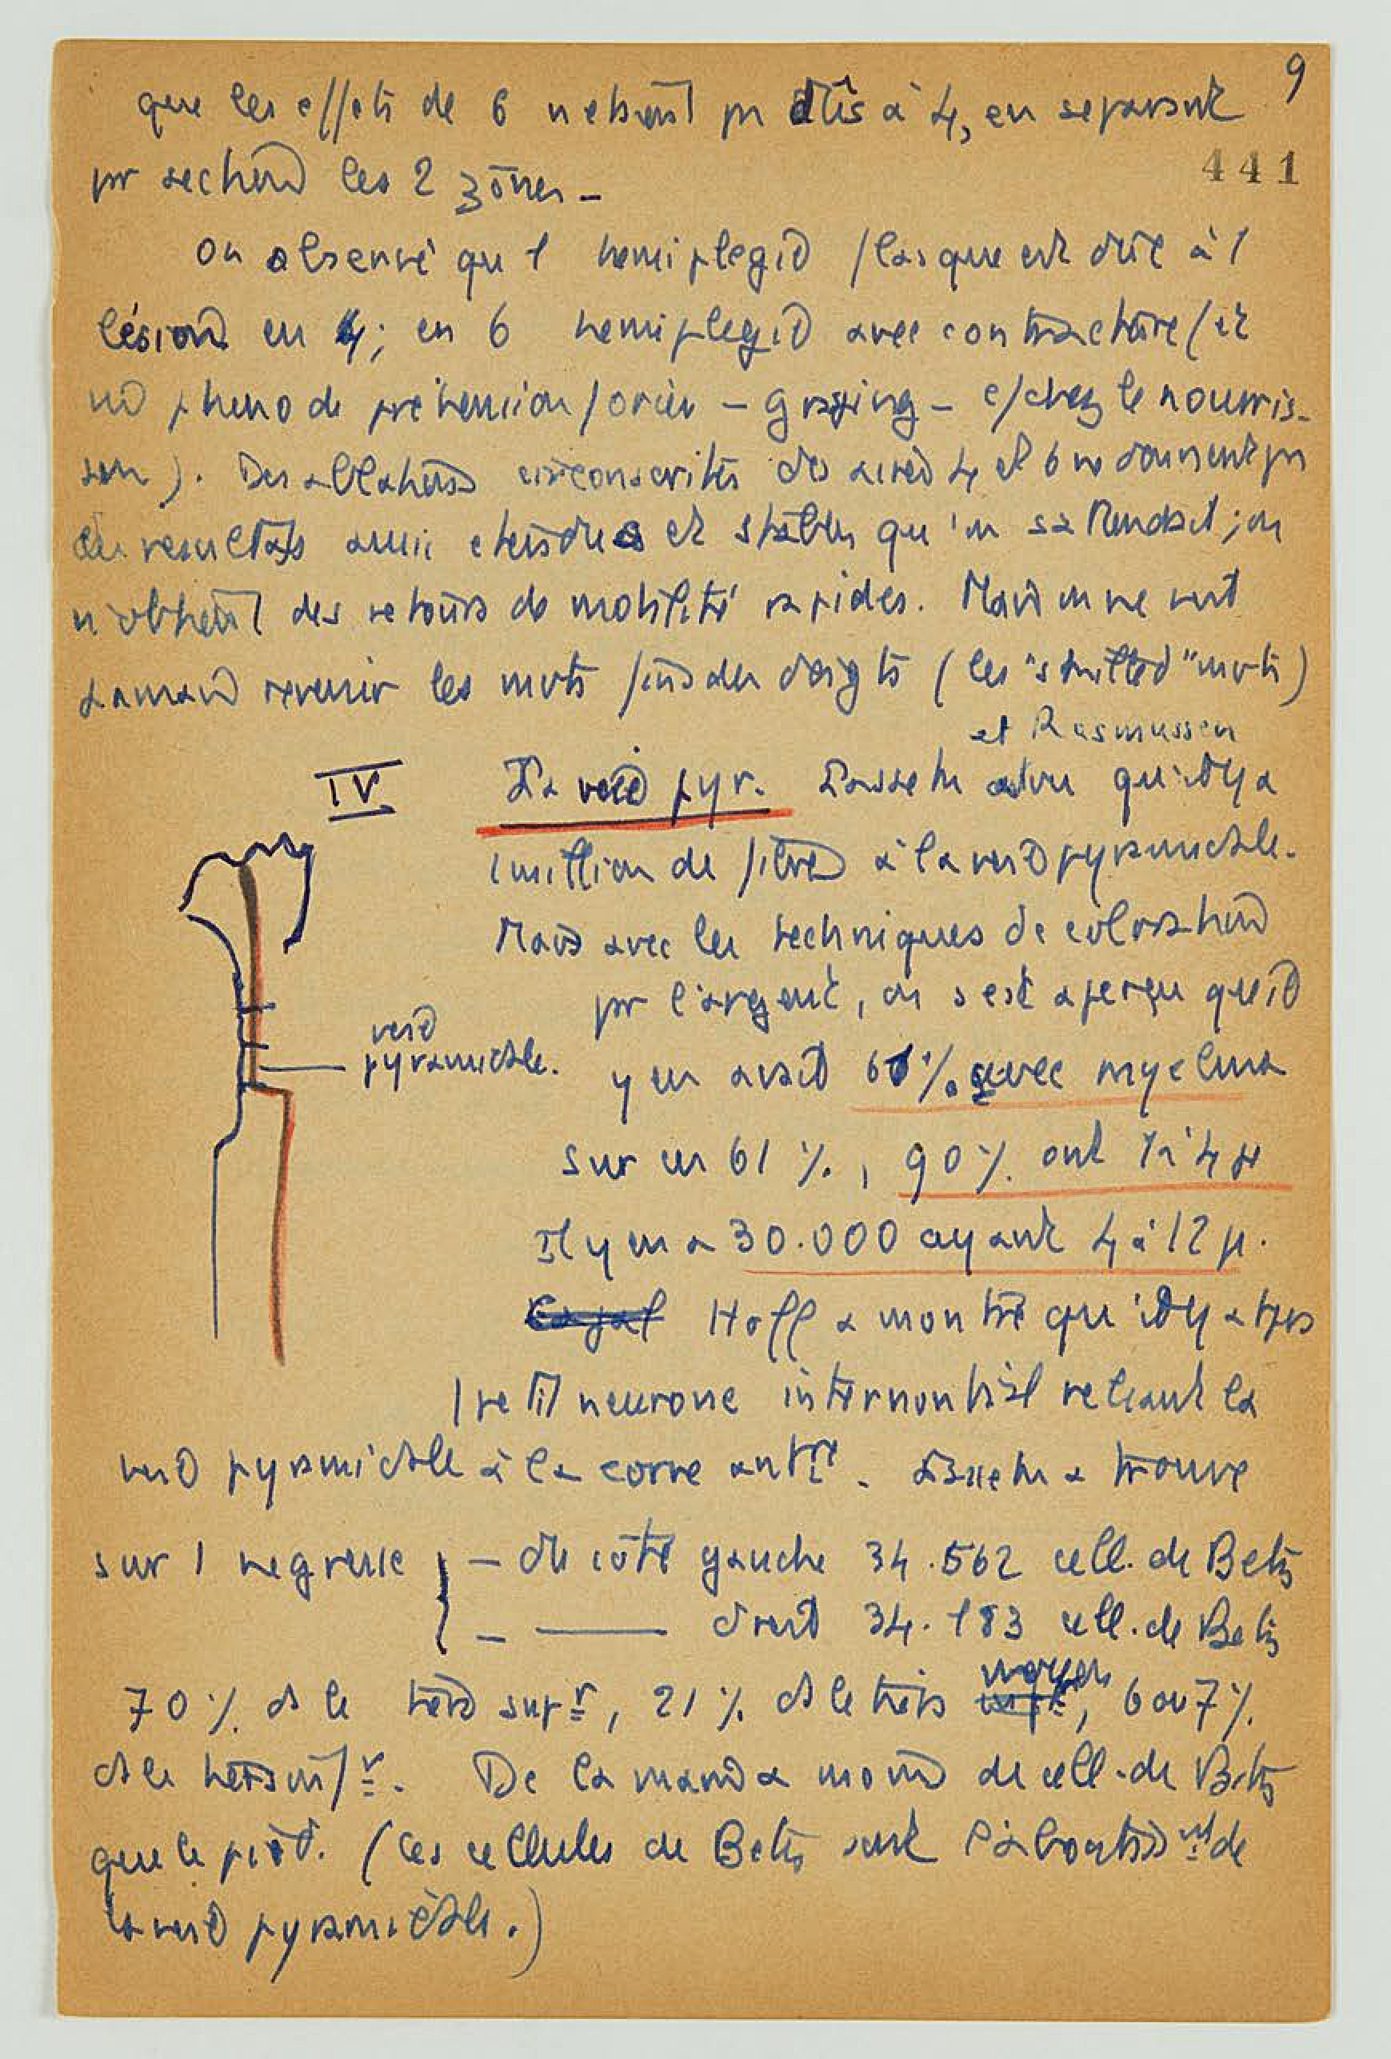 9
que les effets de 6 n'étaient pas dûs à 4, en séparant
441
par section les 2 zones –
on observe qu'1 hémiplégie flasque est dûe à 1
lésion en 4; en 6 hémiplégie avec contracture (et
phéno de préhension forcée – grasping – c/chez le nourris-
son). Des ablations circonscrites des aires 4 et 6 ne donnent pas
des résultats aussi étendus et stables qu'on s'attendait; on
n'obtient des retours de mobilité rapides. Mais on ne voit
jamais revenir les mvts fins des doigts (les "skilled" mvts)
et Rasmussen
IV La voie pyr. Lassek a vu qu'il y a
1 million de fibres à la voie pyramidale.
Mais avec les techniques de coloration
par l'argent, on s'est aperçu qu'il
voie
pyramidale.
y en avait 61 % avec myéline
sur ces 61 %, 90 % ont 1 à 4 µ
Il y en a 30.000 ayant 4 à 12 µ.
Cajal Hoff a montré qu'il y a tjrs
1 petit neurone internuntial reliant la
voie pyramidale à la corne antre. Lassek a trouvé
sur 1 négresse – du côté gauche 34.562 cell. de Betz
– —— droit 34.183 cell. de Betz
70 % ds le tiers supr, 21 % ds le tiers moyen, 6 ou 7 %
ds le tiers infr. De la main a moins de cell. de Betz
que le pied. (Les cellules de Betz sont l'aboutissmt de
la voie pyramidale.)